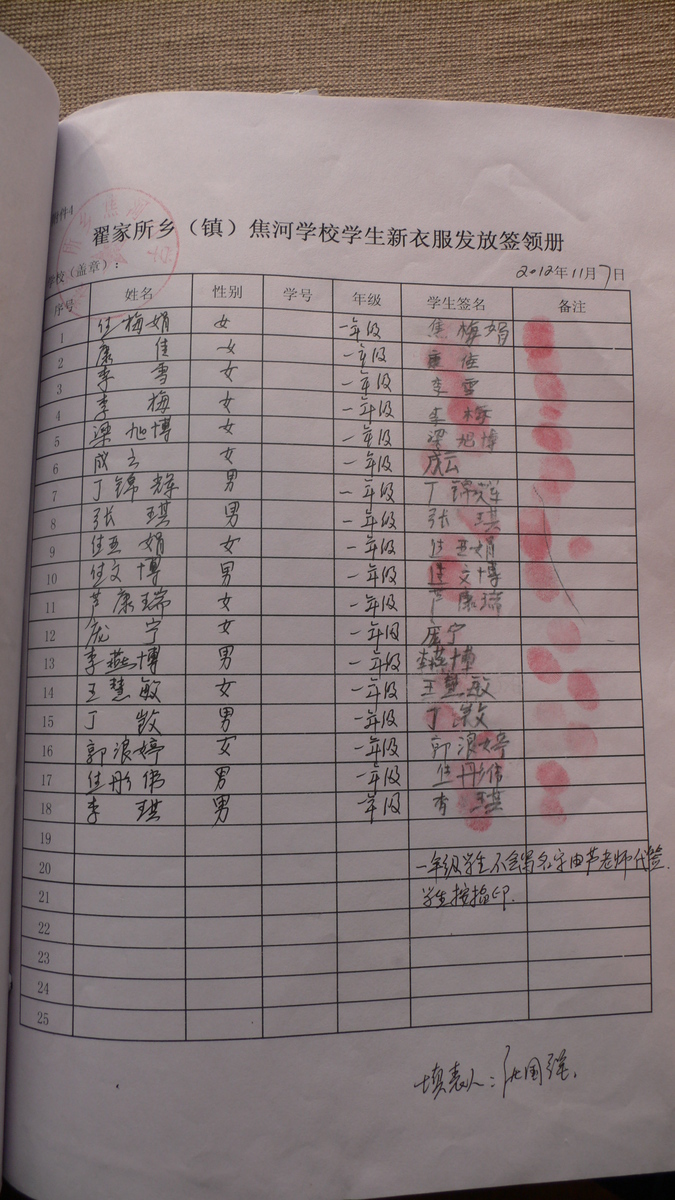 附件4
翟家所乡（镇）焦河学校学生新衣服发放签领册
学校（盖章）： 2012年11月7日
序号 姓名 性别 学号 年级 学生签名 备注
1 焦梅娟 女 一年级 焦梅娟
2 康佳 女 一年级 康佳
3 李雪 女 一年级 李雪
4 李梅 女 一年级 李梅
5 梁旭博 女 一年级 梁旭博
6 成云 女 一年级 成云
7 丁锦辉 男 一年级 丁锦辉
8 张琪 男 一年级 张琪
9 焦亚娟 女 一年级 焦亚娟
10 焦文博 男 一年级 焦文博
11 芦康瑞 女 一年级 芦康瑞
12 庞宁 女 一年级 庞宁
13 李燕博 男 一年级 李燕博
14 王慧敏 女 一年级 王慧敏
15 丁 男 一年级 丁
16 郭浪婷 女 一年级 郭浪婷
17 焦彤伟 男 一年级 焦彤伟
18 李琪 男 一年级 李琪
19
20 一年级学生不会写名字由芦老师代签.
21 学生按指印.
22
23
24
25
填表人：国强.